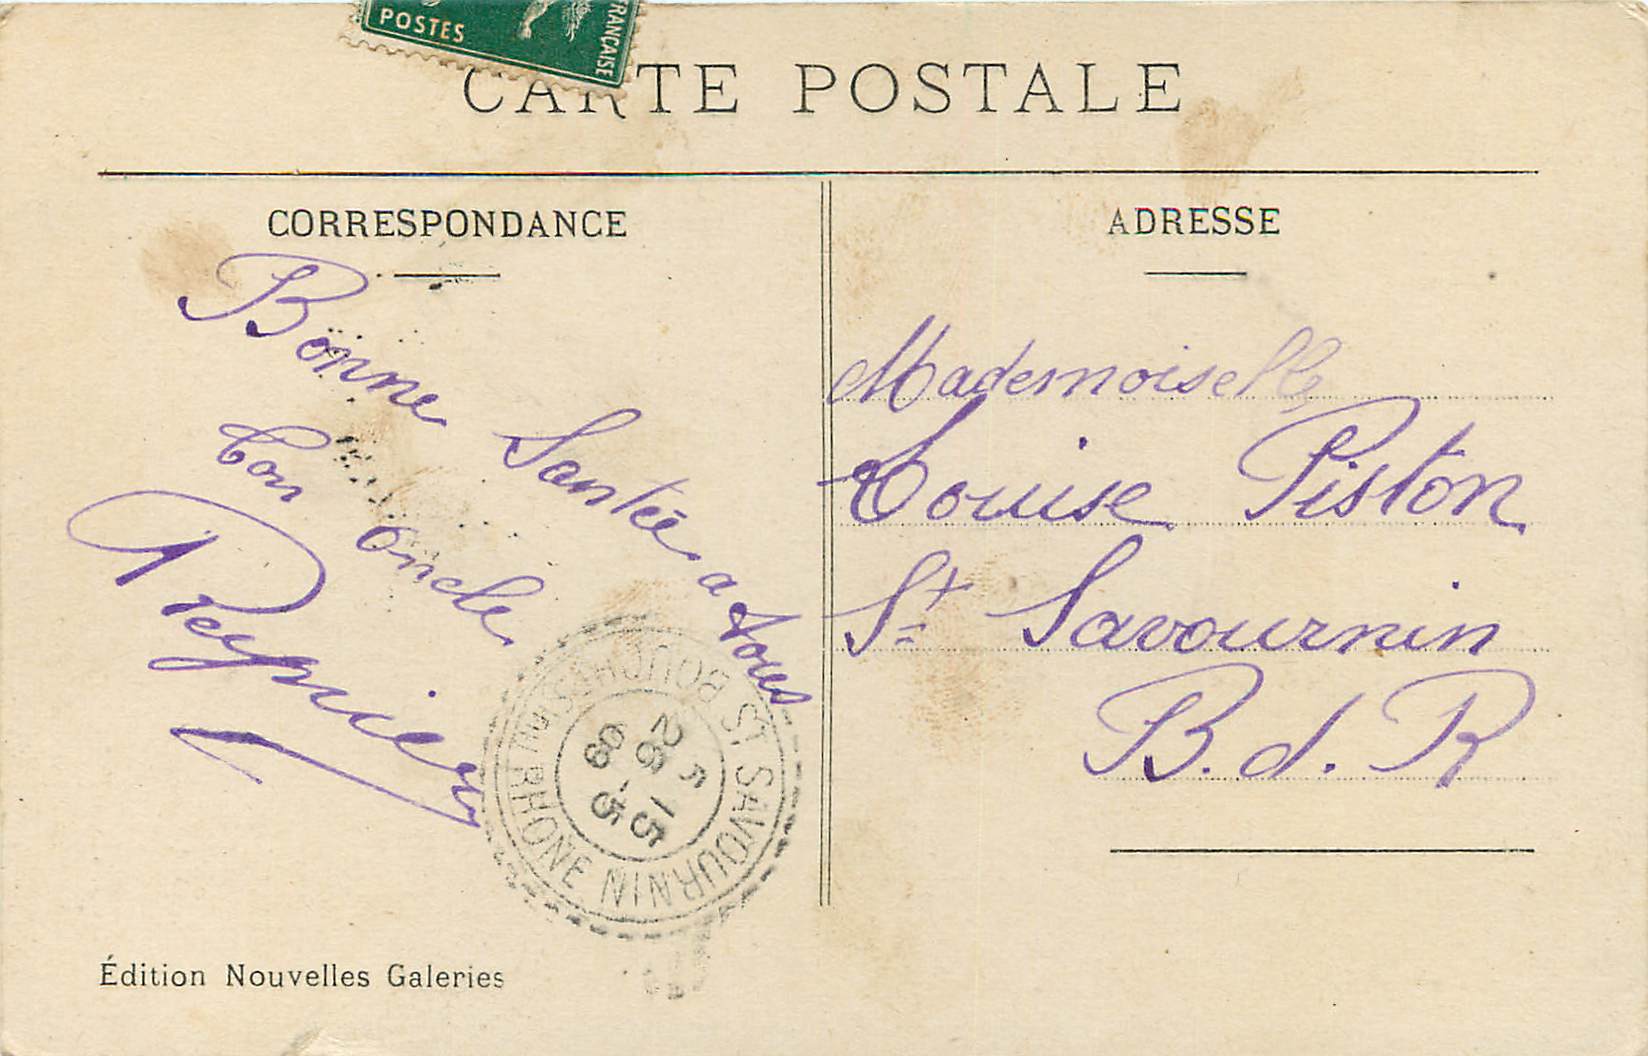 POSTES
FRANÇAISE
CARTE POSTALE
CORRESPONDANCE
Bonne Santée a tous
Ton oncle
Reynier
ADRESSE
Mademoiselle
Louise Piston
St Savournin
B. d. R
ST SAVOURNIN
BOUCHES DU RHONE
5 15
26 -5
09
Édition Nouvelles Galeries